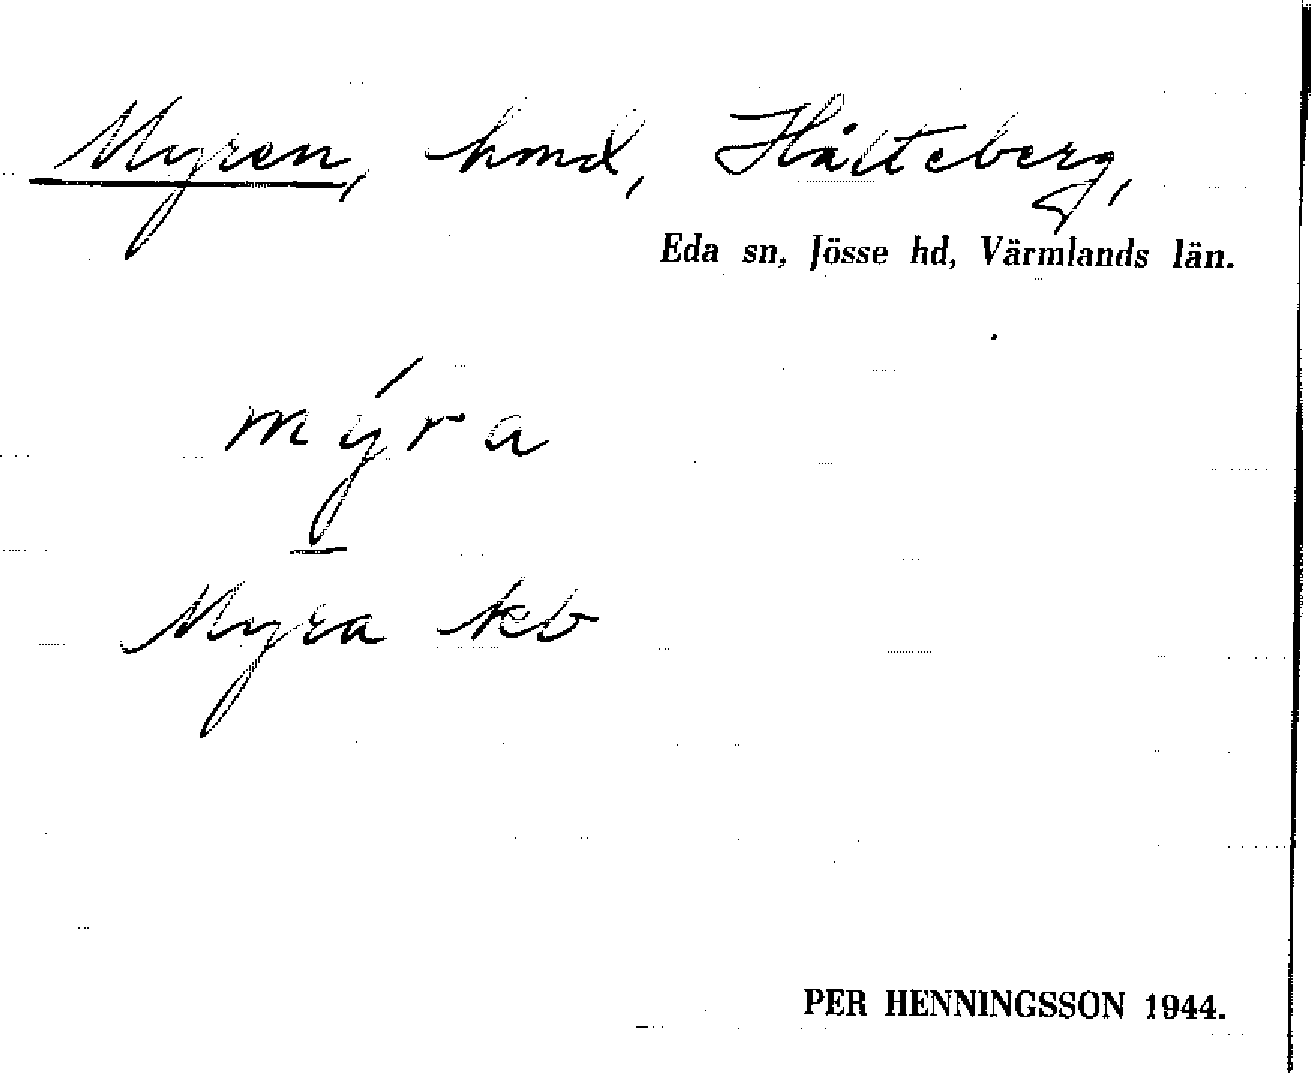 Myren, hmd, Hålteberg,
Eda sn, Jösse hd, Värmlands län.
mý́ra
Myra kb
PER HENNINGSSON 1944.